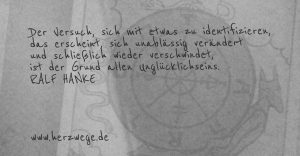 Der Versuch, sich mit etwas zu identifizieren,
das erscheint, sich unablässig verändert
und schließlich wieder verschwindet,
ist der Grund allen Unglücklichseins.
RALF HANKE
www.herzwege.de